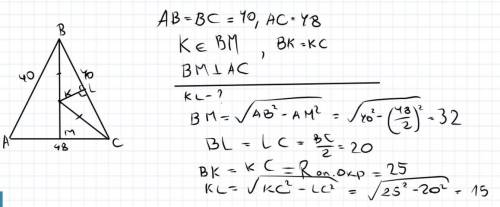 B
40
40
K
L
A
M
C
48
AB = BC = 40, AC = 48
K ∈ BM, BK = KC
BM ⊥ AC
KL - ?
BM = √(AB² - AM²) = √(40² - (48/2)²) = 32
BL = LC = BC/2 = 20
BK = KC = R оп.окр = 25
KL = √(KC² - LC²) = √(25² - 20²) = 15